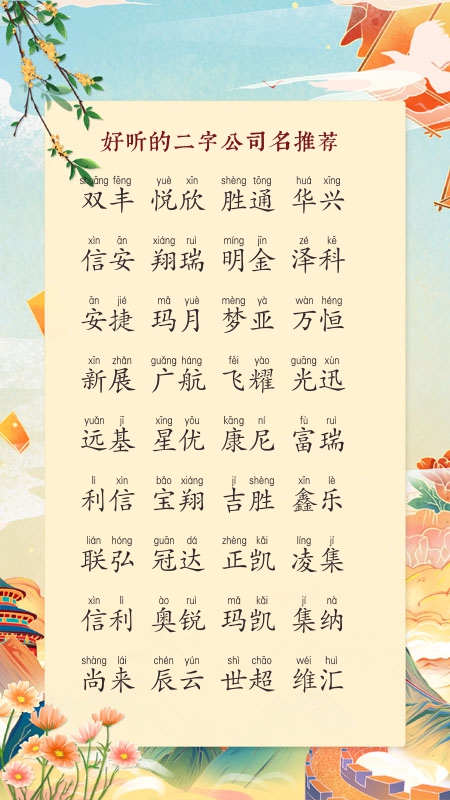 好听的二字公司名推荐
shuāng fēng yuè xīn shèng tōng huá xīng
双丰 悦欣 胜通 华兴
xìn ān xiáng ruì míng jīn zé kē
信安 翔瑞 明金 泽科
ān jié mǎ yuè mèng yà wàn héng
安捷 玛月 梦亚 万恒
xīn zhǎn guǎng háng fēi yào guāng xùn
新展 广航 飞耀 光迅
yuǎn jī xīng yōu kāng ní fù ruì
远基 星优 康尼 富瑞
lì xìn bǎo xiáng jí shèng xīn lè
利信 宝翔 吉胜 鑫乐
lián hóng guān dá zhèng kǎi líng jí
联弘 冠达 正凯 凌集
xìn lì ào ruì mǎ kǎi jí nà
信利 奥锐 玛凯 集纳
shàng lái chén yún shì chāo wéi huì
尚来 辰云 世超 维汇